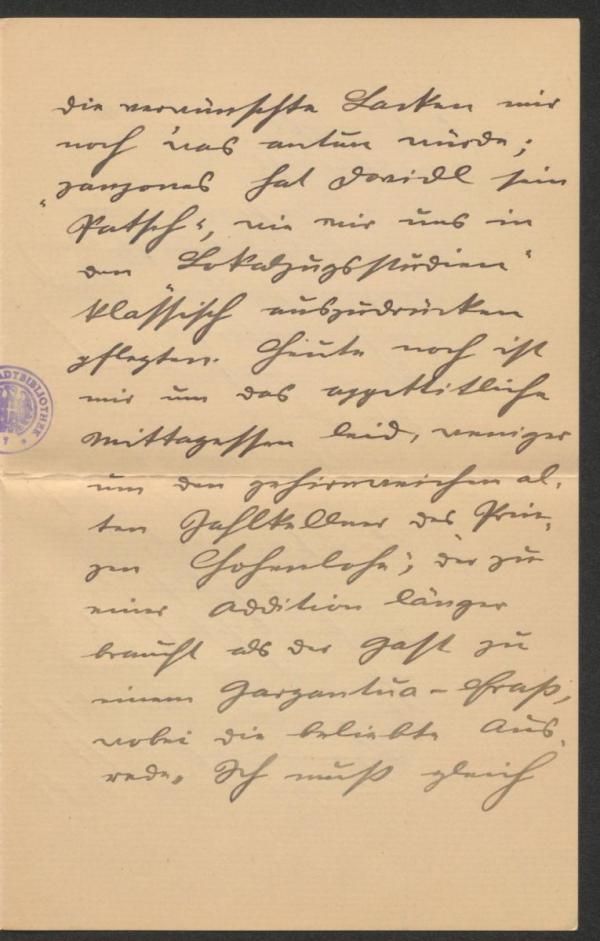 die verwünschte Lacken mir
noch 'was antun würde;
"ganzones hat Davidl sein
Patsch", wie wir uns in
den "Lokalzugsstudien"
klassisch auszudrücken
pflegten. Heute noch ist
mir um das appetitliche
Mittagessen leid, weniger
um den gehirnweichen al-
ten Zahlkellner des Prin-
zen Hohenlohe; der zu
einer Addition länger
braucht als der Gast zu
einem Gargantua-Fraß,
wobei die beliebte Aus-
rede "Ich muß gleich
STADTBIBLIOTHEK